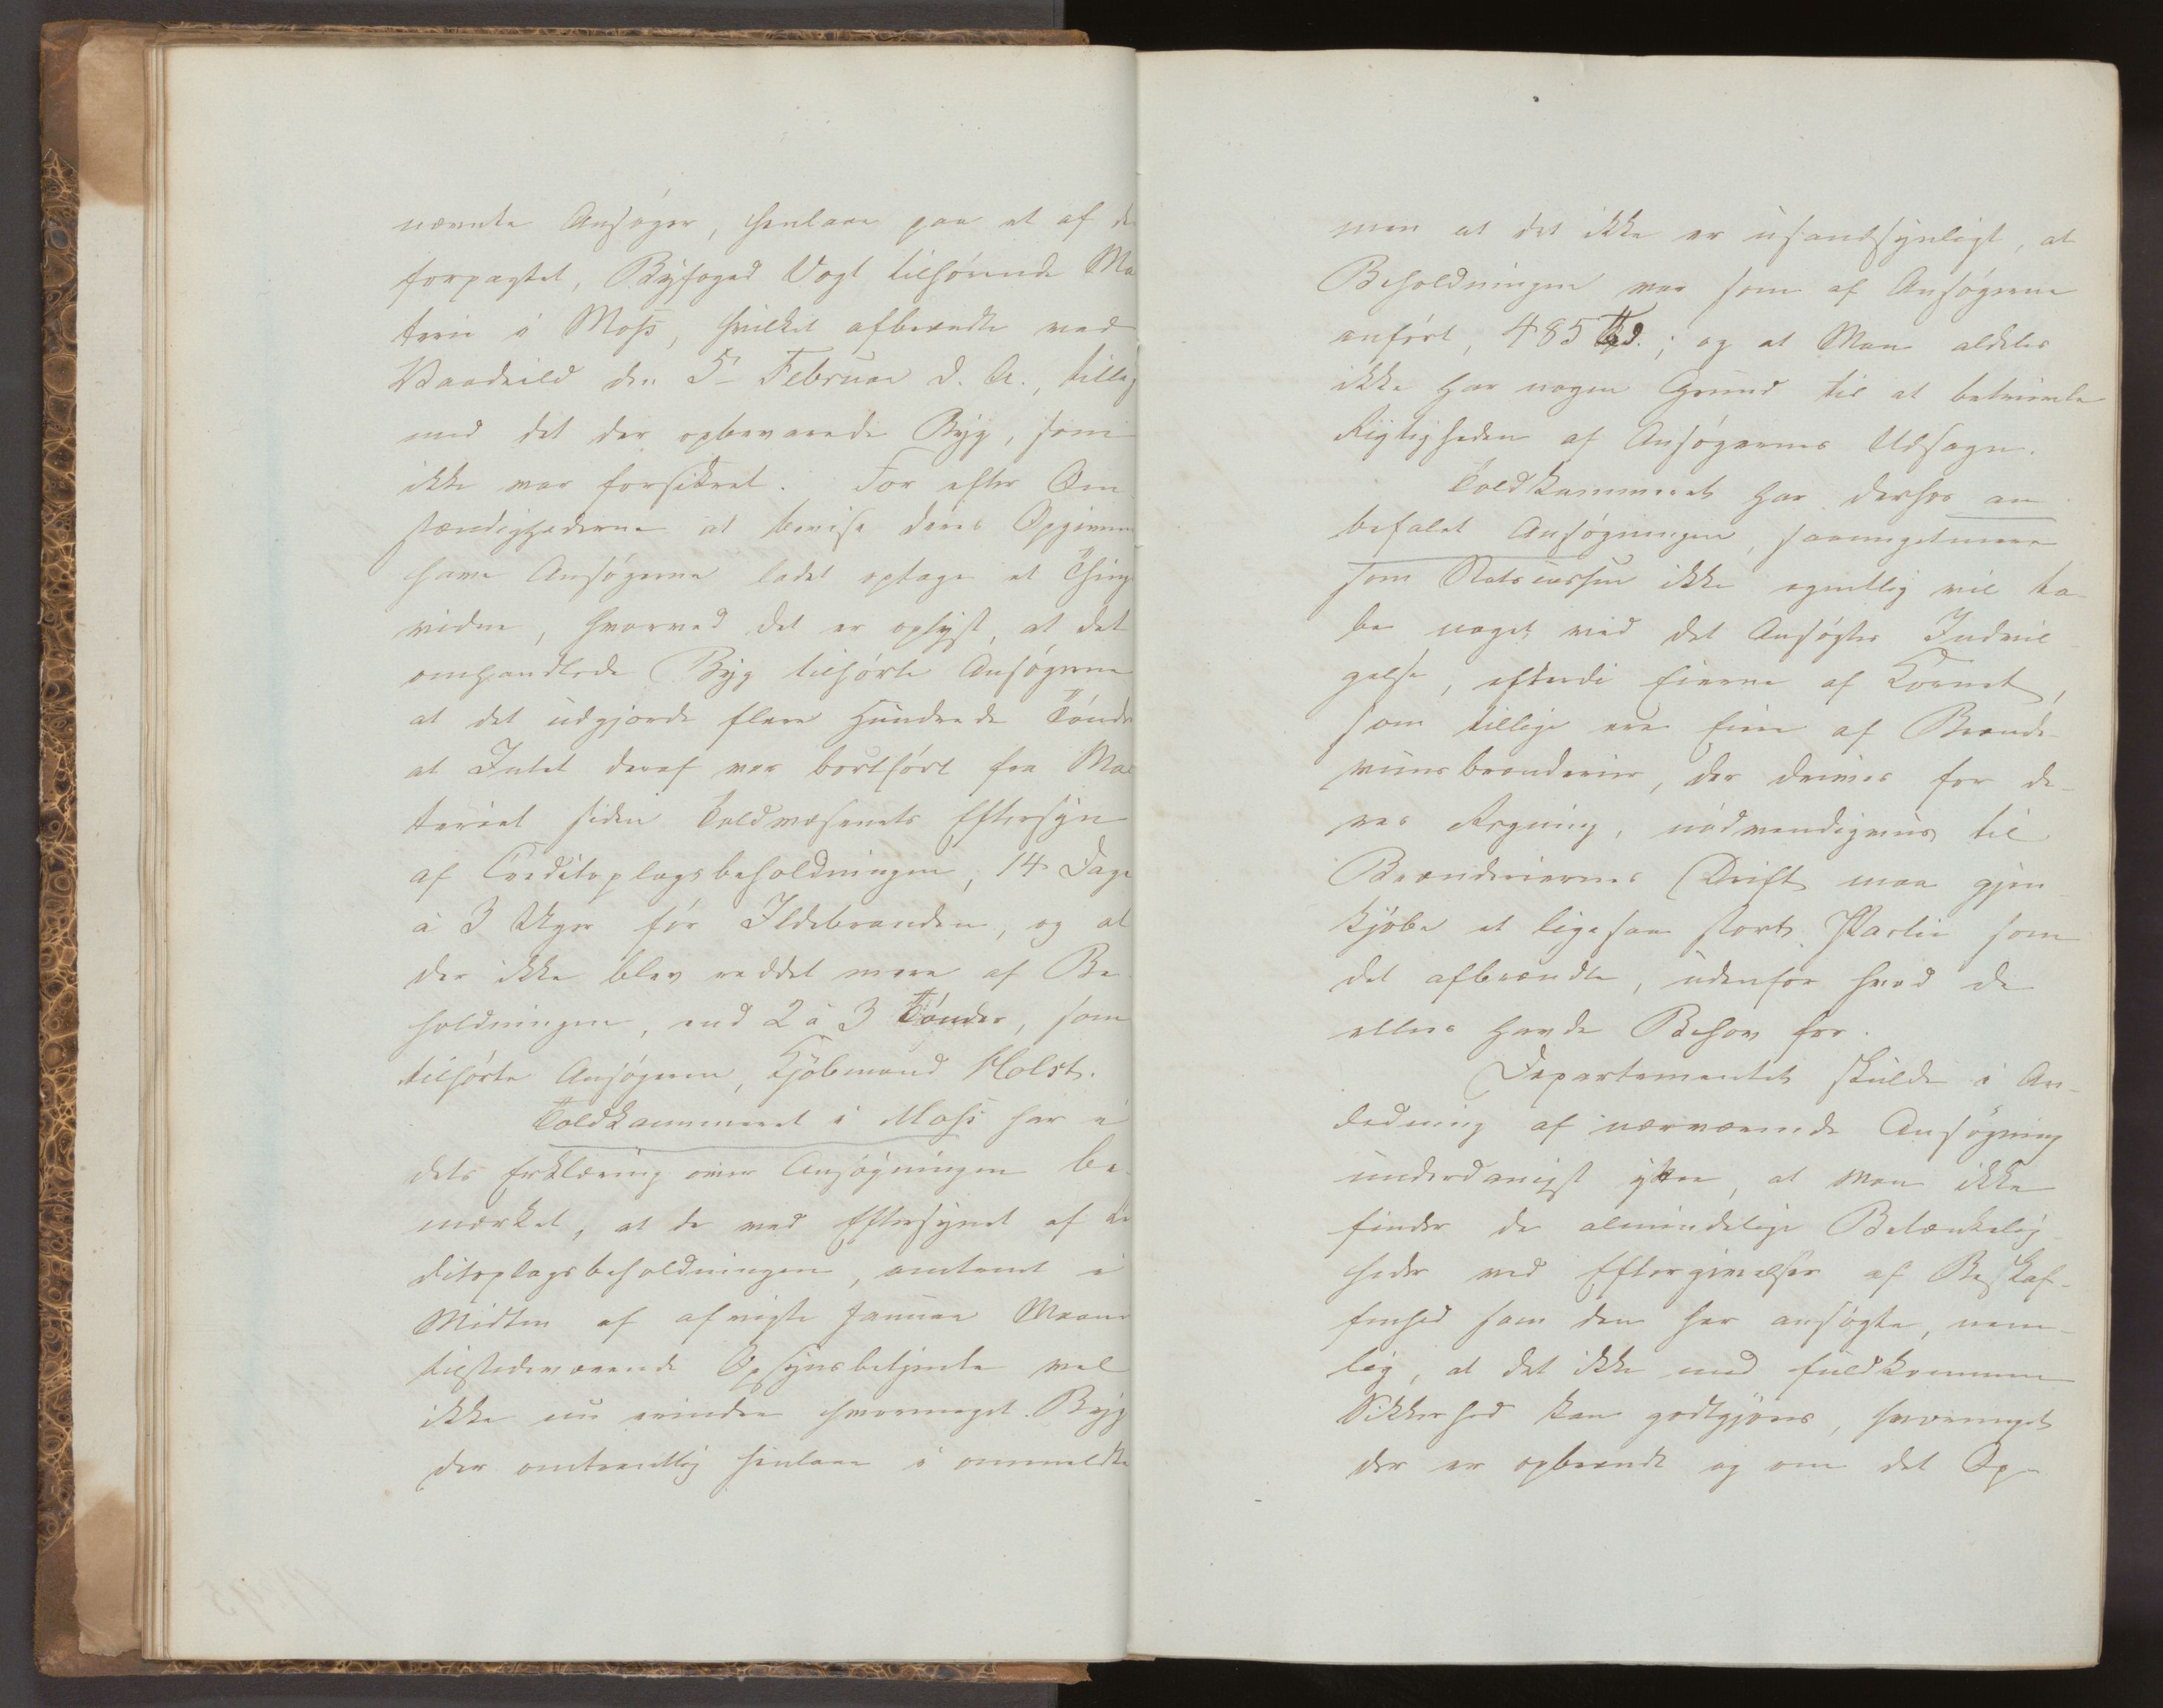 nævnte Ansøger, henlaae paa et af de
forpagtet, Byfoged Vogt tilhørende Ma
terie i Moss, hvilket afbrændte ved
Vaadeild den 5te Februar d. A., tillig
med det der opbevarede Byg, som
ikke var forsikret. For efter Om
stændighederne at bevise deres Opgivende
have Ansøgerne ladet optage et Thing
vidne, hvorved det er oplyst, at det
omhandlede Byg tilhørte Ansøgerne
at det udgjorde flere Hundrede Tønder
at Intet deraf var bortført fra Mal
teriet siden Toldvæsenets Eftersyn
af Creditoplagsbeholdningen, 14 Dage
à 3 Uger før Ildebranden, og at
der ikke blev reddet mere af Be
holdningen, end 2 à 3 Tønder, som
tilhørte Ansøgeren, Kjøbmand Holst.
Toldkammeret i Moss har i
dets Erklæring over Ansøgningen be
mærket, at de ved Eftersynet af Cre
ditoplagsbeholdningen, omtrent i
Midten af afvigte Januar Maaned
tilstedeværende Opsynsbetjente vel
ikke nu erindre hvormeget Byg
der omtrentlig henlaae i ommeldte
men at det ikke er usandsynligt, at
Beholdningen var som af Ansøgerne
anført, 485 Td.; og at Man aldeles
ikke har nogen Grund til at betvivle
Rigtigheden af Ansøgernes Udsagn.
Toldkammeret har derhos an
befalet Ansøgningen, saameget mere
som Statscassen ikke egentlig vil ta-
be noget ved det Ansøgtes Indvil
gelse, efterdi Eierne af Kornet,
som tillige ere Eiere af Brænde-
viinsbrænderier, der drives for de-
res Regning, nødvendigviis til
Brænderiernes Drift maa gjen
kjøbe et ligesaa stort Partie som
det afbrændte, udenfor hvad de
ellers havde Behov for.
Departementet skulde i An-
ledning af nærværende Ansøgning
underdanigst yttre, at Man ikke
finder de almindelige Betænkelig-
heder ved Eftergivelser af Beskaf-
fenhed som den her ansøgte, nem-
lig, at det ikke med fuldkommen
Sikkerhed kan godtgjøres, hvormeget
der er opbrændt og om det Op-